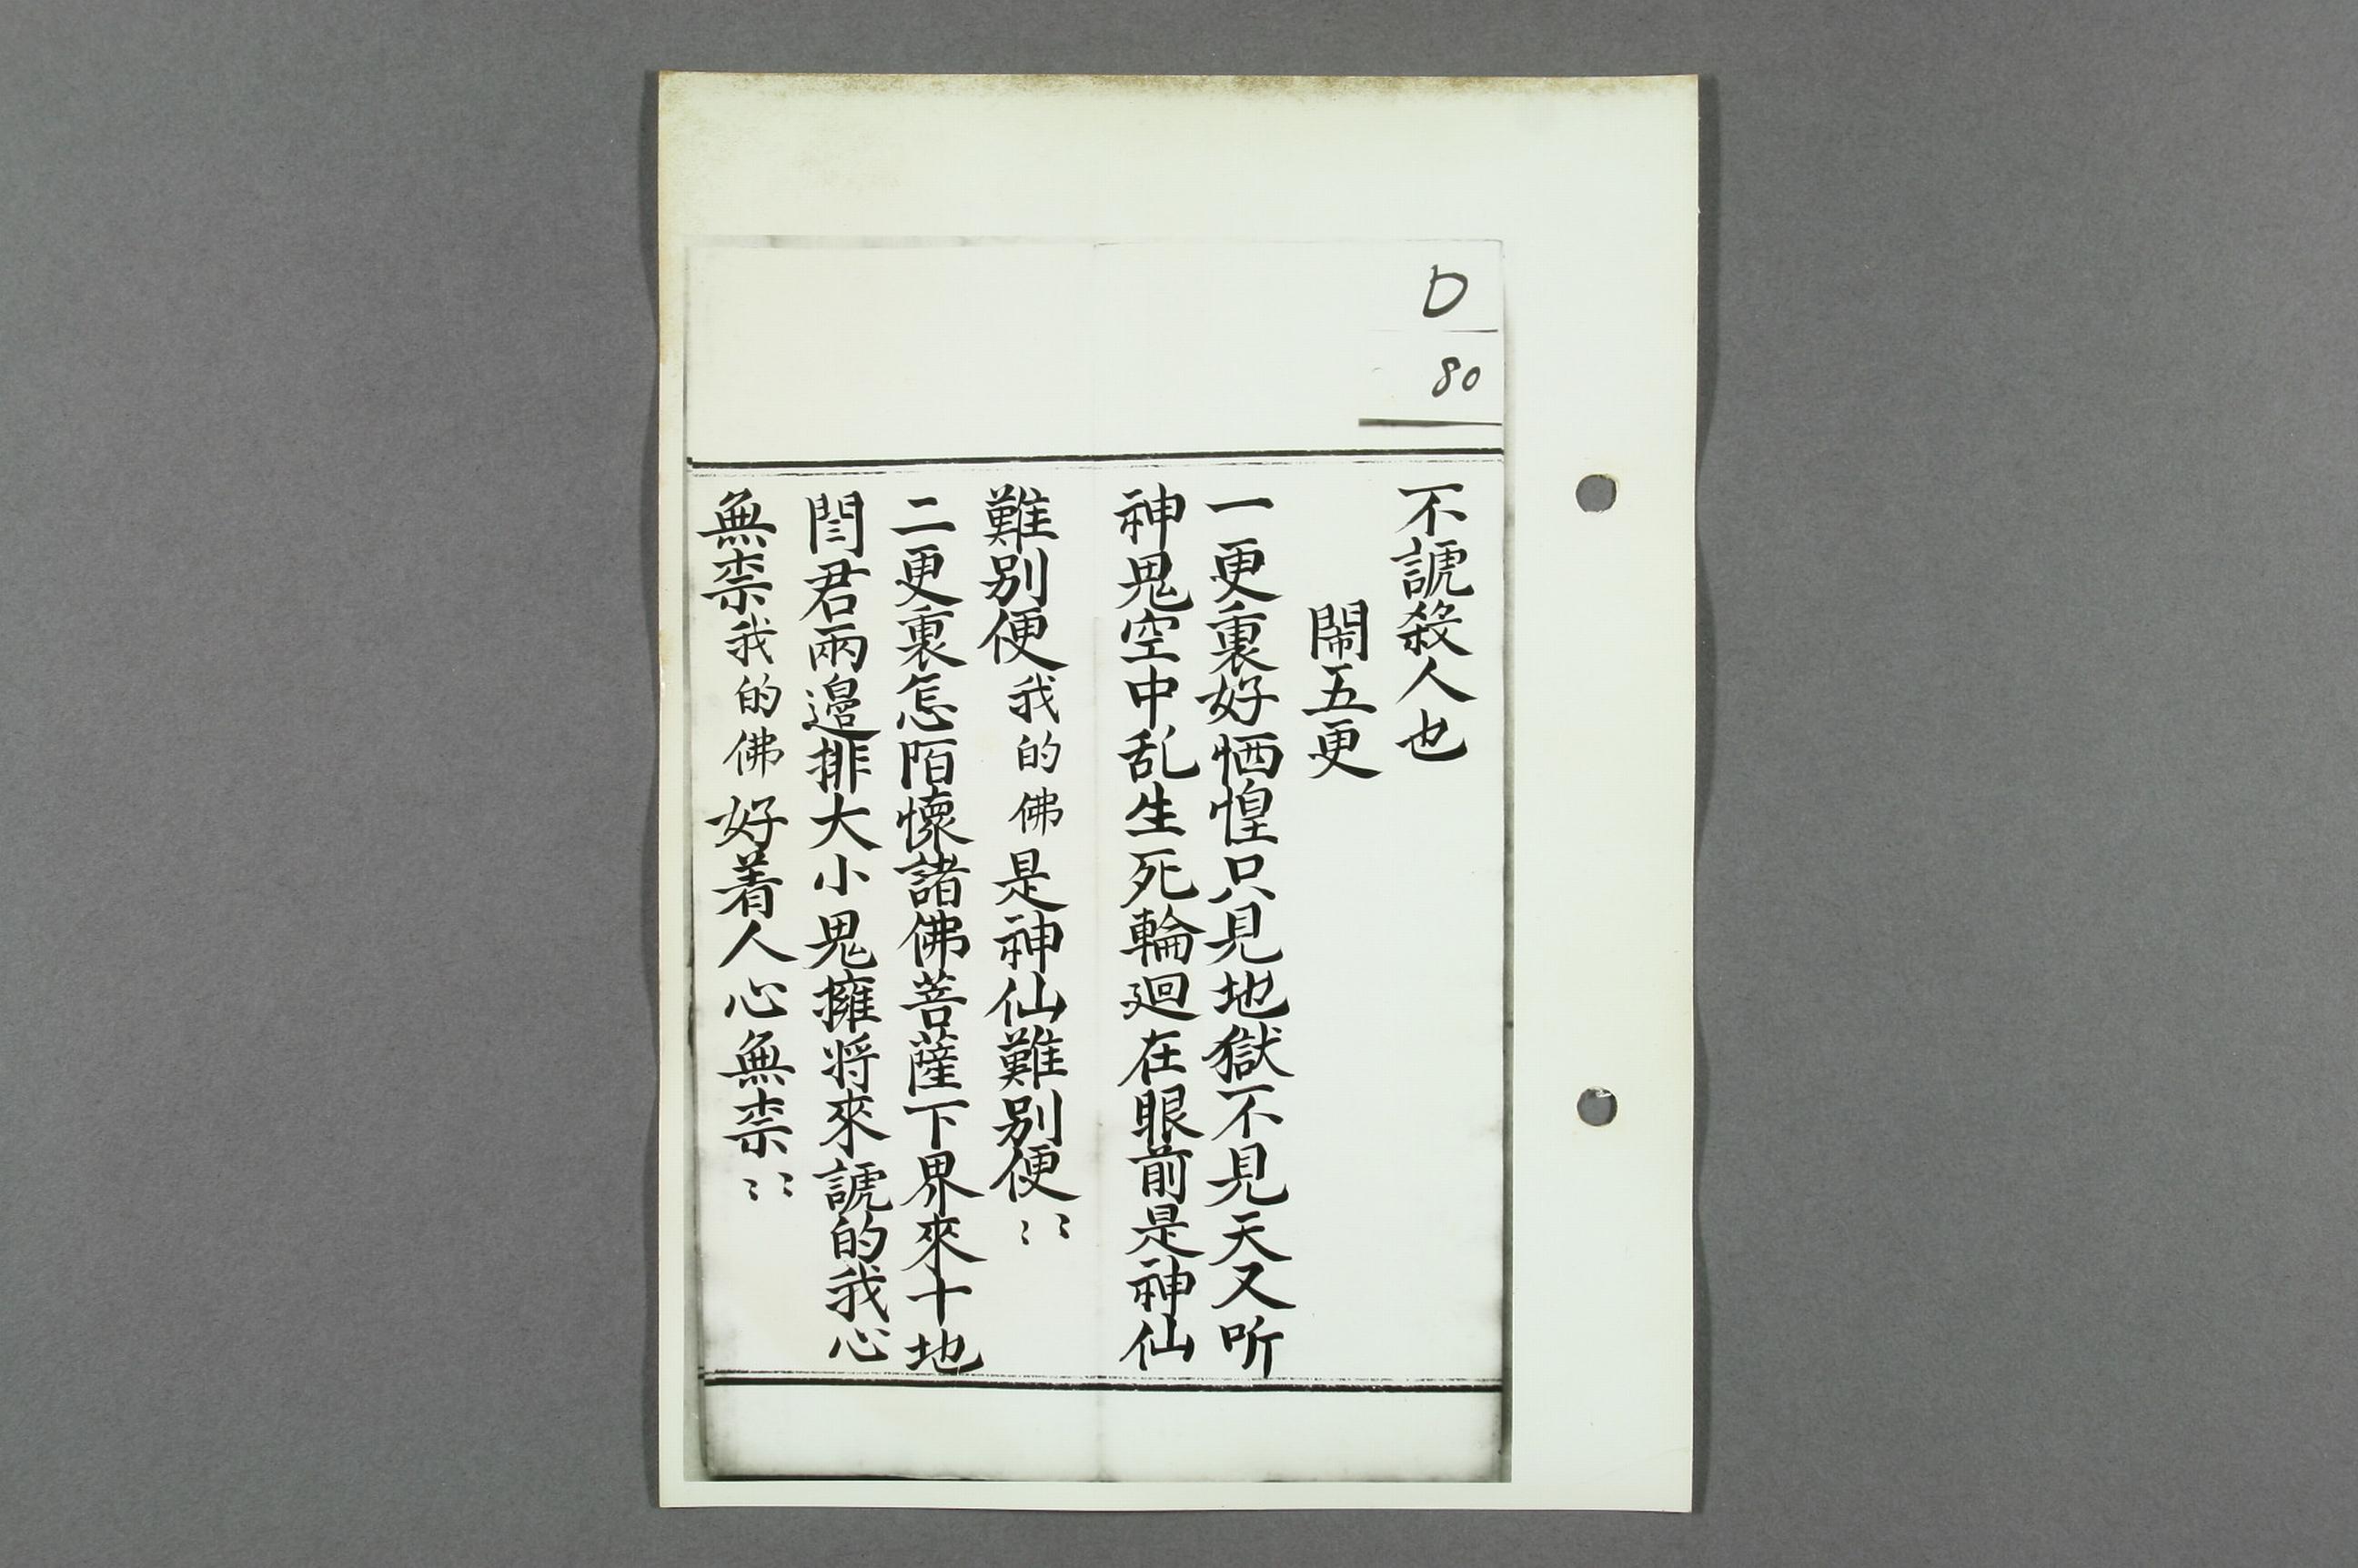 D
80
不諕殺人也
鬧五更
一更裏好恓惶只見地獄不見天又听
神鬼空中乱生死輪廻在眼前是神仙
難別便我的佛是神仙難別便〻〻
二更裏怎陌懷諸佛菩薩下界來十地
閆君兩邉排大小鬼擁将來諕的我心
無柰我的佛好着人心無柰〻〻